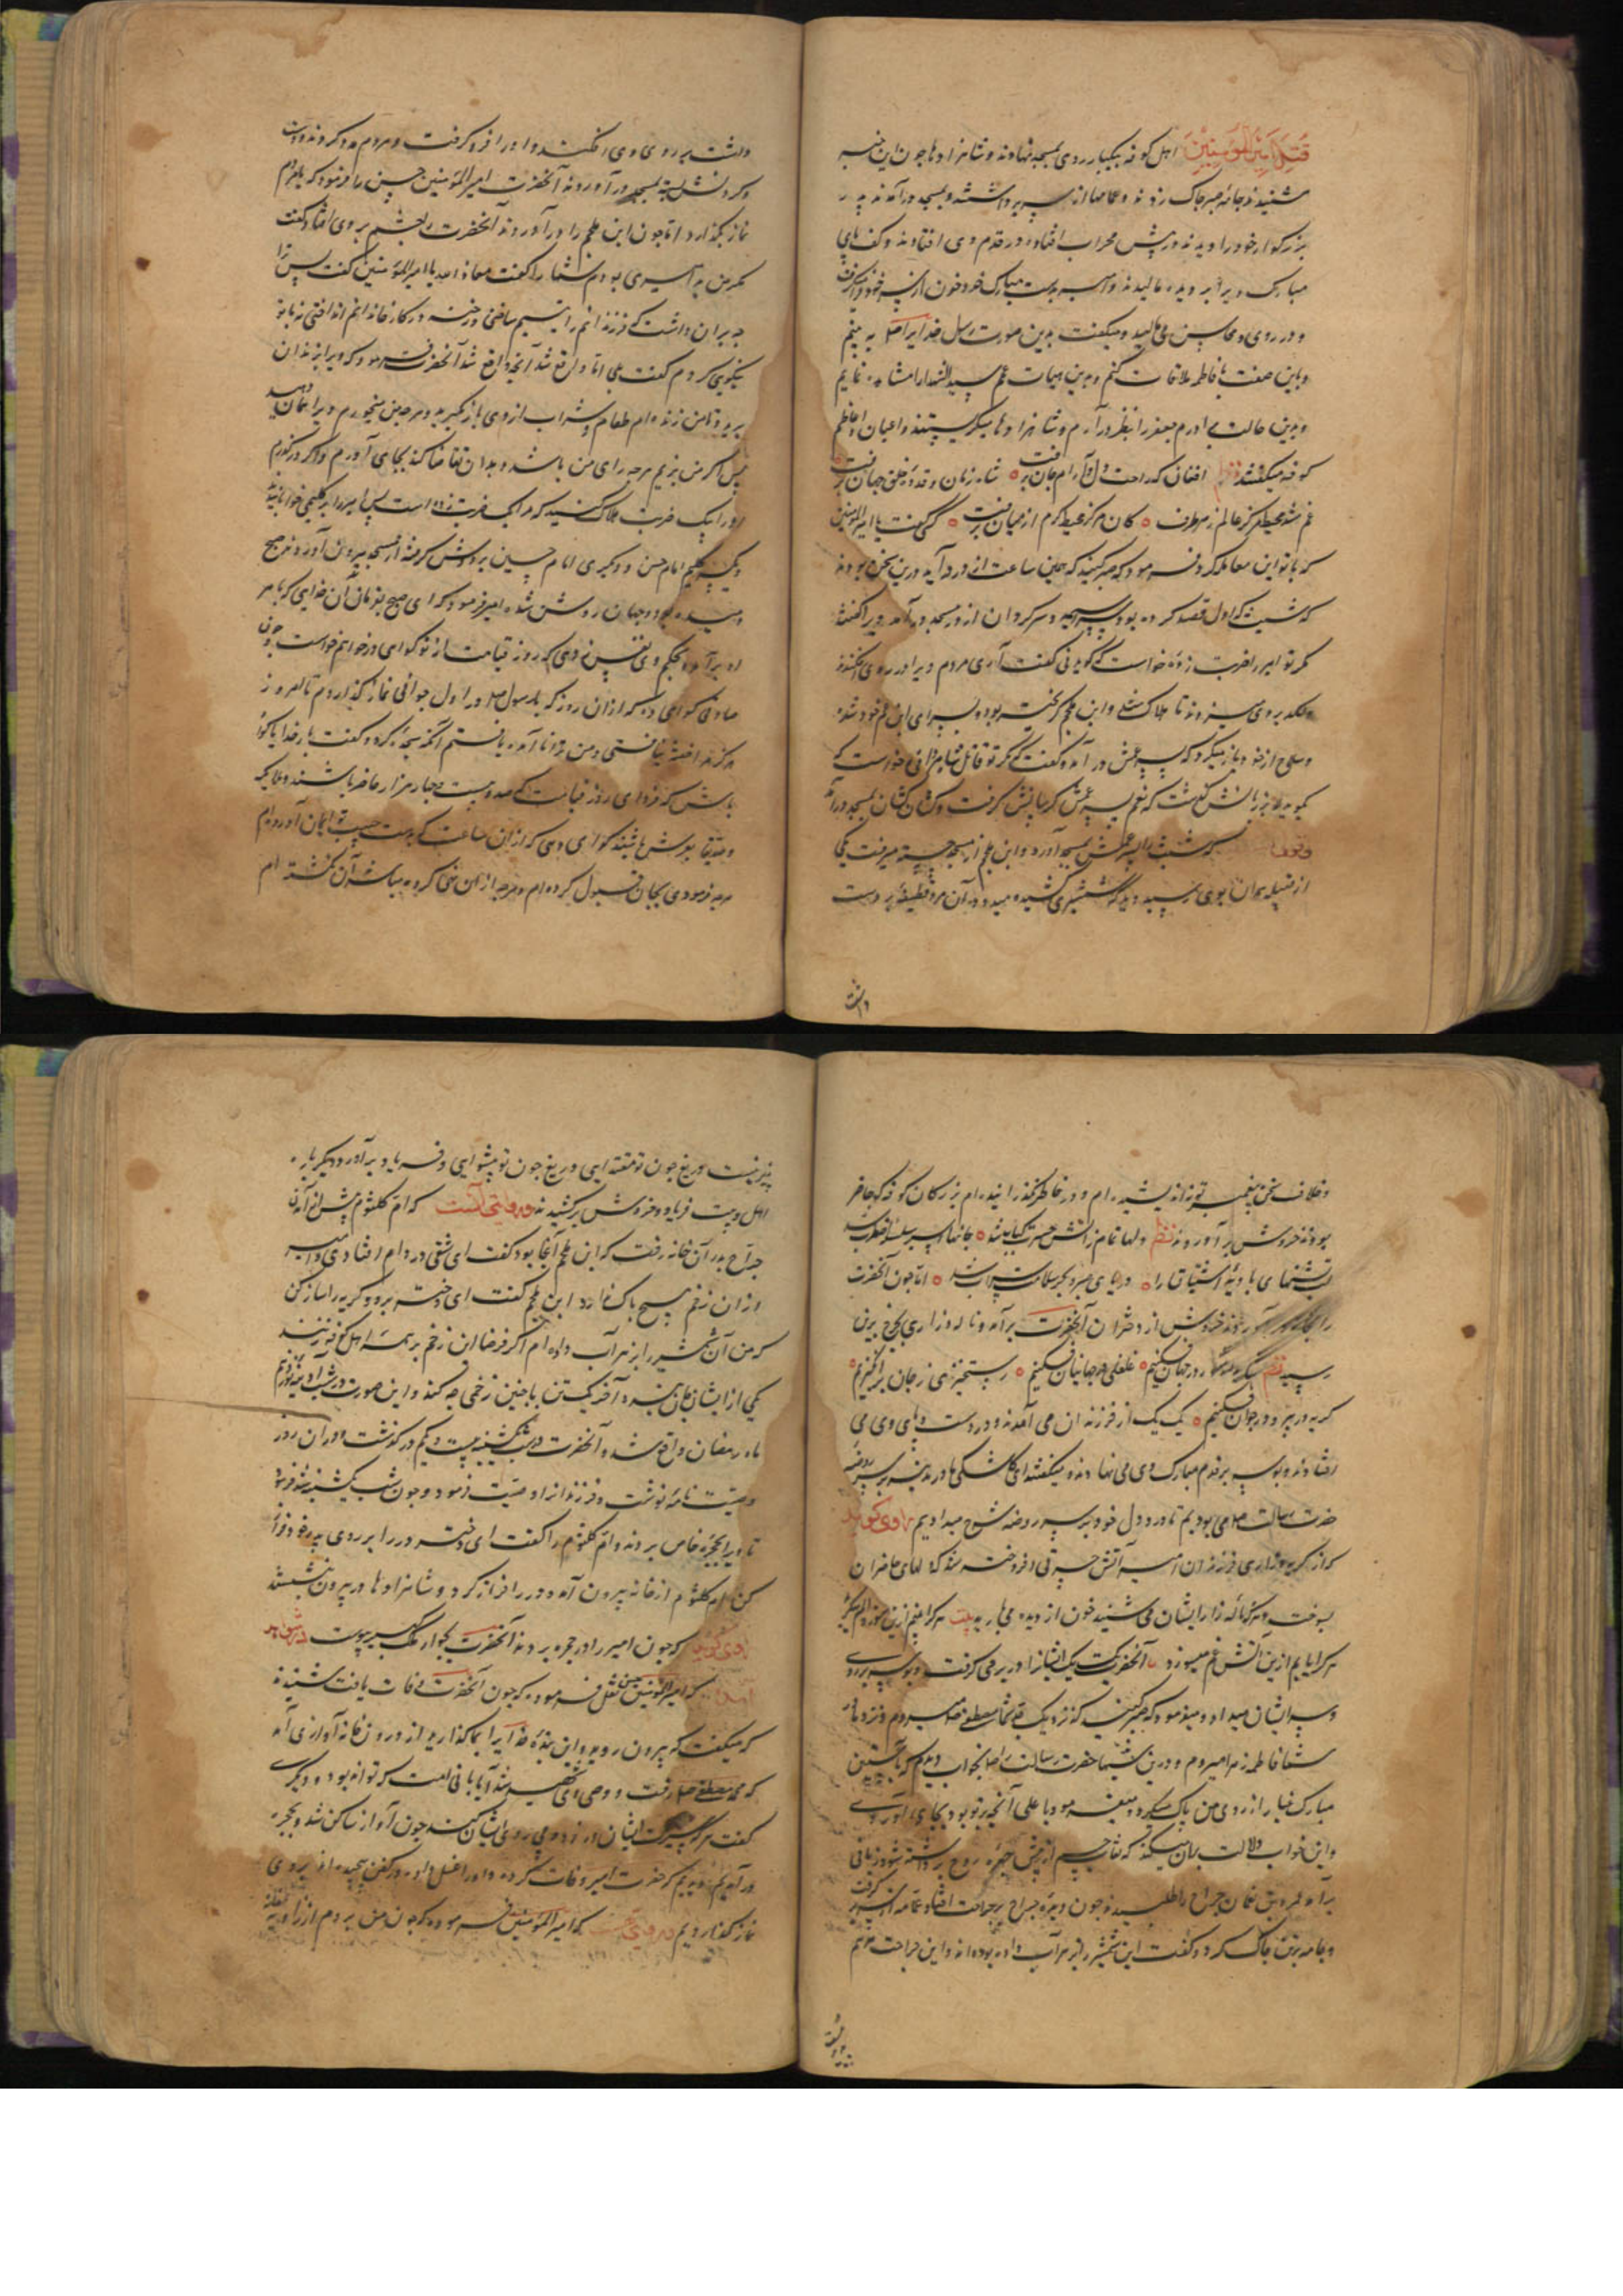 قتل امیر المؤمنین اهل کوفه بیکبار روی بمسجد نهادند و شاهزادها چون این خبر
شنیدند جامهٔ صبر چاک زدند و عمامها از سر برداشتند و بمسجد درآمدند پدر
بزرگوار خود را دیدند در پیش محراب افتاده در قدم وی افتادند و کف پای
مبارک ویرا بر دیده مالیدند و امیر بدست مبارک خود خون از سر خود
و در روی و محاسن می مالید و میگفت بدین صورت رسول خدایرا صلعم به بینم
و باین صفت با فاطمه ملاقات کنم و بدین هیات عم سید الشهدا را مشاهده نمایم
و بدین حالت برادرم جعفر را بنظر درآرم و شاهزادها میگریستند و اعیان و اعاظم
کوفه میگفتند نظم افغان که راحت دل و آرام جان برفت شاه زمان و قدوهٔ خلق جهان برفت
غم شد محیط مرکز عالم ز هر طرف کان مرکز محیط کرم از میان برفت گفت یا امیر المؤمنین
که با تو این معامله کرد فرمود که صبر کنید که همین ساعت از در درآید درین سخن بودند
که شبیب که اول قصد کرده بود سراسیمه و سرگردان از در مسجد درآمد ویرا گفتند
مگر تو امیر را ضربت زدهٔ خواست که گوید نی گفت آری مردم ویرا در روی افکندند
و لگد بر وی میزدند تا هلاک شد و ابن ملجم گریخته بود و بسرای ابن عم خود شده
و سلاح از خود باز میکرد که پسر عمش درآمد و گفت که مگر تو قاتل خواست که
گوید لا بر زبانش گذشت که نعم پسر عمش گریبانش گرفت و کشان کشان بمسجد درآورد
که شبیب را پسر عمش بمسجد آورد و ابن ملجم از مسجد بیرون جسته میرفت یکی
از قبیله همدان بوی رسید دید که شمشیری کشیده میدود آن مرد قطیفهٔ بر دست
داشت
داشت بر روی وی افکند و او را فرو گرفت و مردم مدد کردند و دست
و گردنش بسته بمسجد درآوردند آنحضرت امیر المؤمنین حسن را فرمود که با مردم
نماز بگذارد اما چون ابن ملجم را درآوردند آنحضرت را چشم بر وی افتاد گفت
مگر من بد امیری بودم شما را گفت معاذ الله یا امیر المؤمنین گفت پس ترا
چه بران داشت که فرزندانم را یتیم ساختی و رخنه در کار خاندانم انداختی نه با تو
نیکویی کردم گفت بلی اما واقع شد آنچه واقع شد آنحضرت فرمود که ویرا بزندان
برید و تا من زنده‌ام طعام و شراب از وی باز مگیرید و هرچه من میخورم ویرا همان دهید
پس اگر من بزیم هرچه رای من باشد و بدان تقاضا کند بجای آورم و اگر درگذرم
او را بیک ضربت هلاک کنید که مرا یک ضربت زده است پس امیر را بر گلیمی خوابانیده
و یک سر گلیم امام حسن و دیگری امام حسین بر دوش گرفته از مسجد بیرون آوردند صبح
دمیده بود و جهان روشن شده امیر فرمود که ای صبح بفرمان آن خدایی که بامر
او برآمدی بحکم وی نفس زدی که روز قیامت از تو گواهی درخواهم خواست چون
صادقی گواهی ده که ازان روز که با رسول صلعم در اول جوانی نماز گذاردم تا امروز
هرگز مرا خفته نیافتی و من ترا ناآمده یافتم آنگه سجده کرد و گفت بار خدایا گواه
باش که فردای روز قیامت که صد و بیست و چهار هزار حاضر باشند و ملایکه
عرش باشند گواهی دهی که ازان ساعت که بدست حبیب تو ایمان آورده‌ام
هرچه فرمودی بجان قبول کرده‌ام و هرچه ازان نهی کرده مباشر آن نگشته‌ام
و خلاف سخن پیغمبر تو نه اندیشیده‌ام و در خاطر نگذرانیده‌ام بزرگان کوفه که حاضر
بودند خروش برآوردند نظم دلها تمام ز آتش حسرت کباب شد جانها اسیر سلسلهٔ اضطراب شد
لب تشنهای بادیهٔ اشتیاق را دریای صبر و بحر سلامت سراب شد اما چون آنحضرت
آوردند خروش از دختران آنحضرت برآمد و ناله و زاری بچرخ برین
رسید نظم در جهان فکنیم غلغلی در جهانیان فکنیم رستخیزی ز جان برانگیزیم
گریه در پیر و در جوان فکنیم یک یک از فرزندان می آمدند و در دست و پای وی می
افتادند و بوسه بر قدم مبارک وی می نهادند و میگفتند ای کاشکی ما در مدینه بر سر روضهٔ
حضرت رسالت صلعم می بودیم تا درد دل خود بر سر روضه شرح میدادیم راوی گوید
که از گریه و زاری فرزندان امیر آتش حسرتی افروخته شد که دلهای حاضران
بسوخت و هر که نالهٔ زار ایشان می شنید خون از دیده می بارید بیت
هر کرا یابیم ازین آتش غم میسوزد آنحضرت یک یک ایشانرا در بر می گرفت و بوسه بر روی
و سر ایشان میداد و میفرمود که صبر کنید که نزدیک جد شما مصطفی صلعم میروم و نزد مادر
شما فاطمه زهرا میروم و درین شبها حضرت رسالت را صلعم بخواب دیدم که بآستین
مبارک غبار از روی من پاک میکرد و میفرمود یا علی آنچه بر تو بود بجای آوردی
و این خواب دلالت بران میکند که نقاب جسم از پیش چهرهٔ روح برداشته شود زمانی
برآمد عمرو بن نعمان جراح را طلبیدند چون دیدهٔ جراح بر جراحت افتاد عمامه از سر گرفت
و جامه بر تن چاک کرد و گفت این شمشیر را بزهر آب داده بوده‌اند و این جراحت مرهم
پذیر نیست دریغ چون تو مقتدایی دریغ چون تو پیشوایی و فریاد برآورد دیگر باره
اهل بیت فریاد و خروش برکشیدند و در روایتی آنست که ام کلثوم پیش از آمدن
جراح بدر آن خانه رفت که ابن ملجم آنجا بود گفت ای شقی در دام افتادی و امیر
را ازان زخم هیچ باک ندارد ابن ملجم گفت ای دختر برو و گریه را ساز کن
که من آن شمشیر را بزهر آب داده‌ام اگر فرضا این زخم بر همه اهل کوفه زنند
یکی از ایشان جان نبرد آخر یک تن با چنین زخمی چه کند و این صورت در شب آدینه نوزدهم
ماه رمضان واقع شد و آنحضرت در شب یکشنبه بیست و یکم درگذشت و در آن روز
وصیت نامه نوشت و فرزندانرا وصیت فرمود و چون شب یکشنبه شد فرمود
تا ویرا بحجرهٔ خاص بردند و ام کلثوم را گفت ای دختر در را بر روی پدر خود فراز
کن ام کلثوم از خانه بیرون آمد و در را فراز کرد و شاهزادها در بیرون بنشستند
راوی گوید که چون امیر را در حجره بردند آنحضرت بجوار ملک کبیر پیوست
که امیر المؤمنین حسین نقل فرموده که چون آنحضرت وفات یافت شنیدند
که میگفت که بیرون روید و این بندهٔ خدایرا بما گذارید از درون خانه آوازی آمد
که محمد مصطفی صلعم رفت و وصی وی شهید شد آیا باقی امت که تواند بود دیگری
گفت هر که سیرت ایشان ورزد و در پی روی ایشان کند چون آواز ساکن شد بحجره
درآمدیم دیدیم که حضرت امیر وفات کرده و او را غسل داده و در کفن پیچیده‌اند بر وی
نماز گذاردیم در روایتی که امیر المؤمنین فرموده که چون من بمردم از زاویه